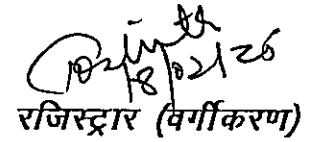 18/02/26
रजिस्ट्रार (वर्गीकरण)